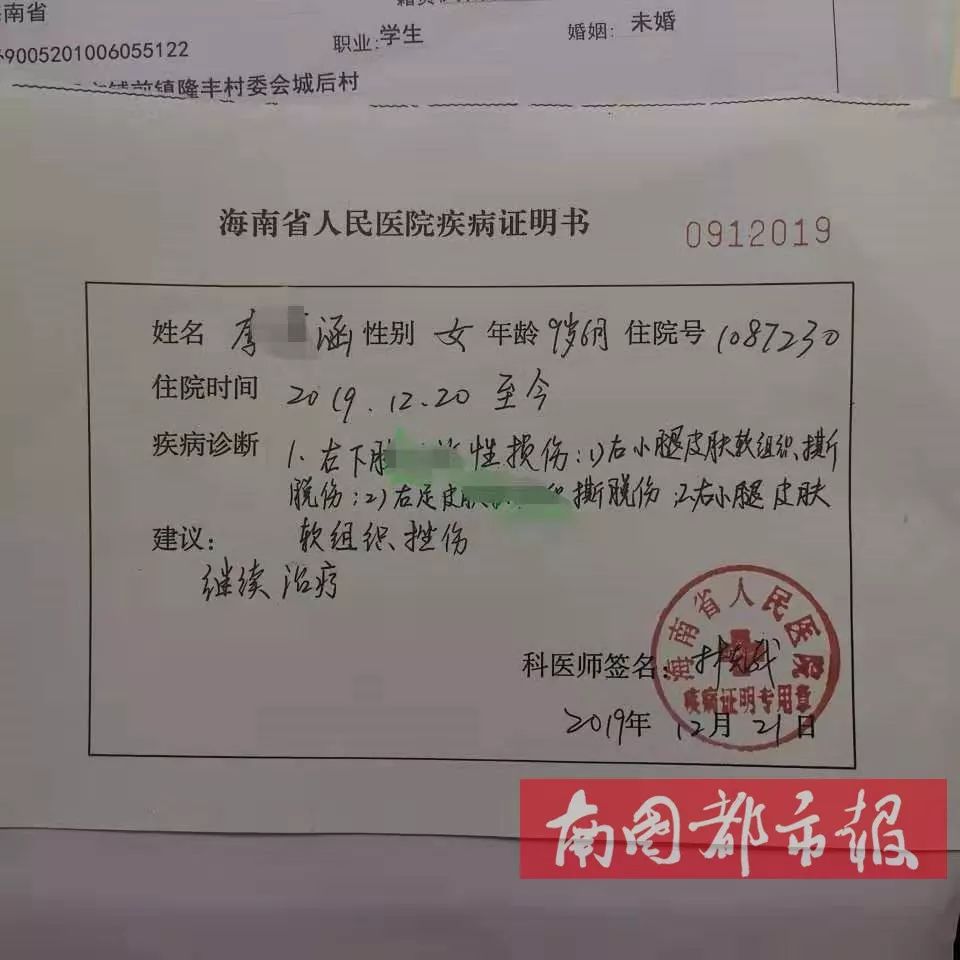 海南省
9005201006055122 职业:学生 婚姻: 未婚
铺前镇隆丰村委会城后村
海南省人民医院疾病证明书 0912019
姓名 李 涵 性别 女 年龄 9岁6月 住院号 1087230
住院时间 2019.12.20 至今
疾病诊断 1.右下肢 性损伤:1)右小腿皮肤软组织撕
脱伤;2)右足皮肤软 织撕脱伤 2.右小腿皮肤
软组织挫伤
建议:
继续治疗
海南省人民医院
科医师签名:
疾病证明专用章
2019年 12月 21日
南国都市报